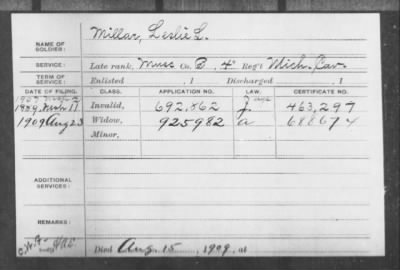 NAME OF SOLDIER: Millar, Leslie L.
SERVICE: Late rank, Muss Co. B, 4" Reg't Mich. Cav.
TERM OF SERVICE: Enlisted , 1 Discharged , 1
DATE OF FILING. CLASS. APPLICATION NO. LAW. CERTIFICATE NO.
Invalid, 692,862 J 463,297
1909 Aug 23 Widow, 925982 a 688674
Minor,
ADDITIONAL SERVICES:
REMARKS:
Died Aug. 15, 1909, at